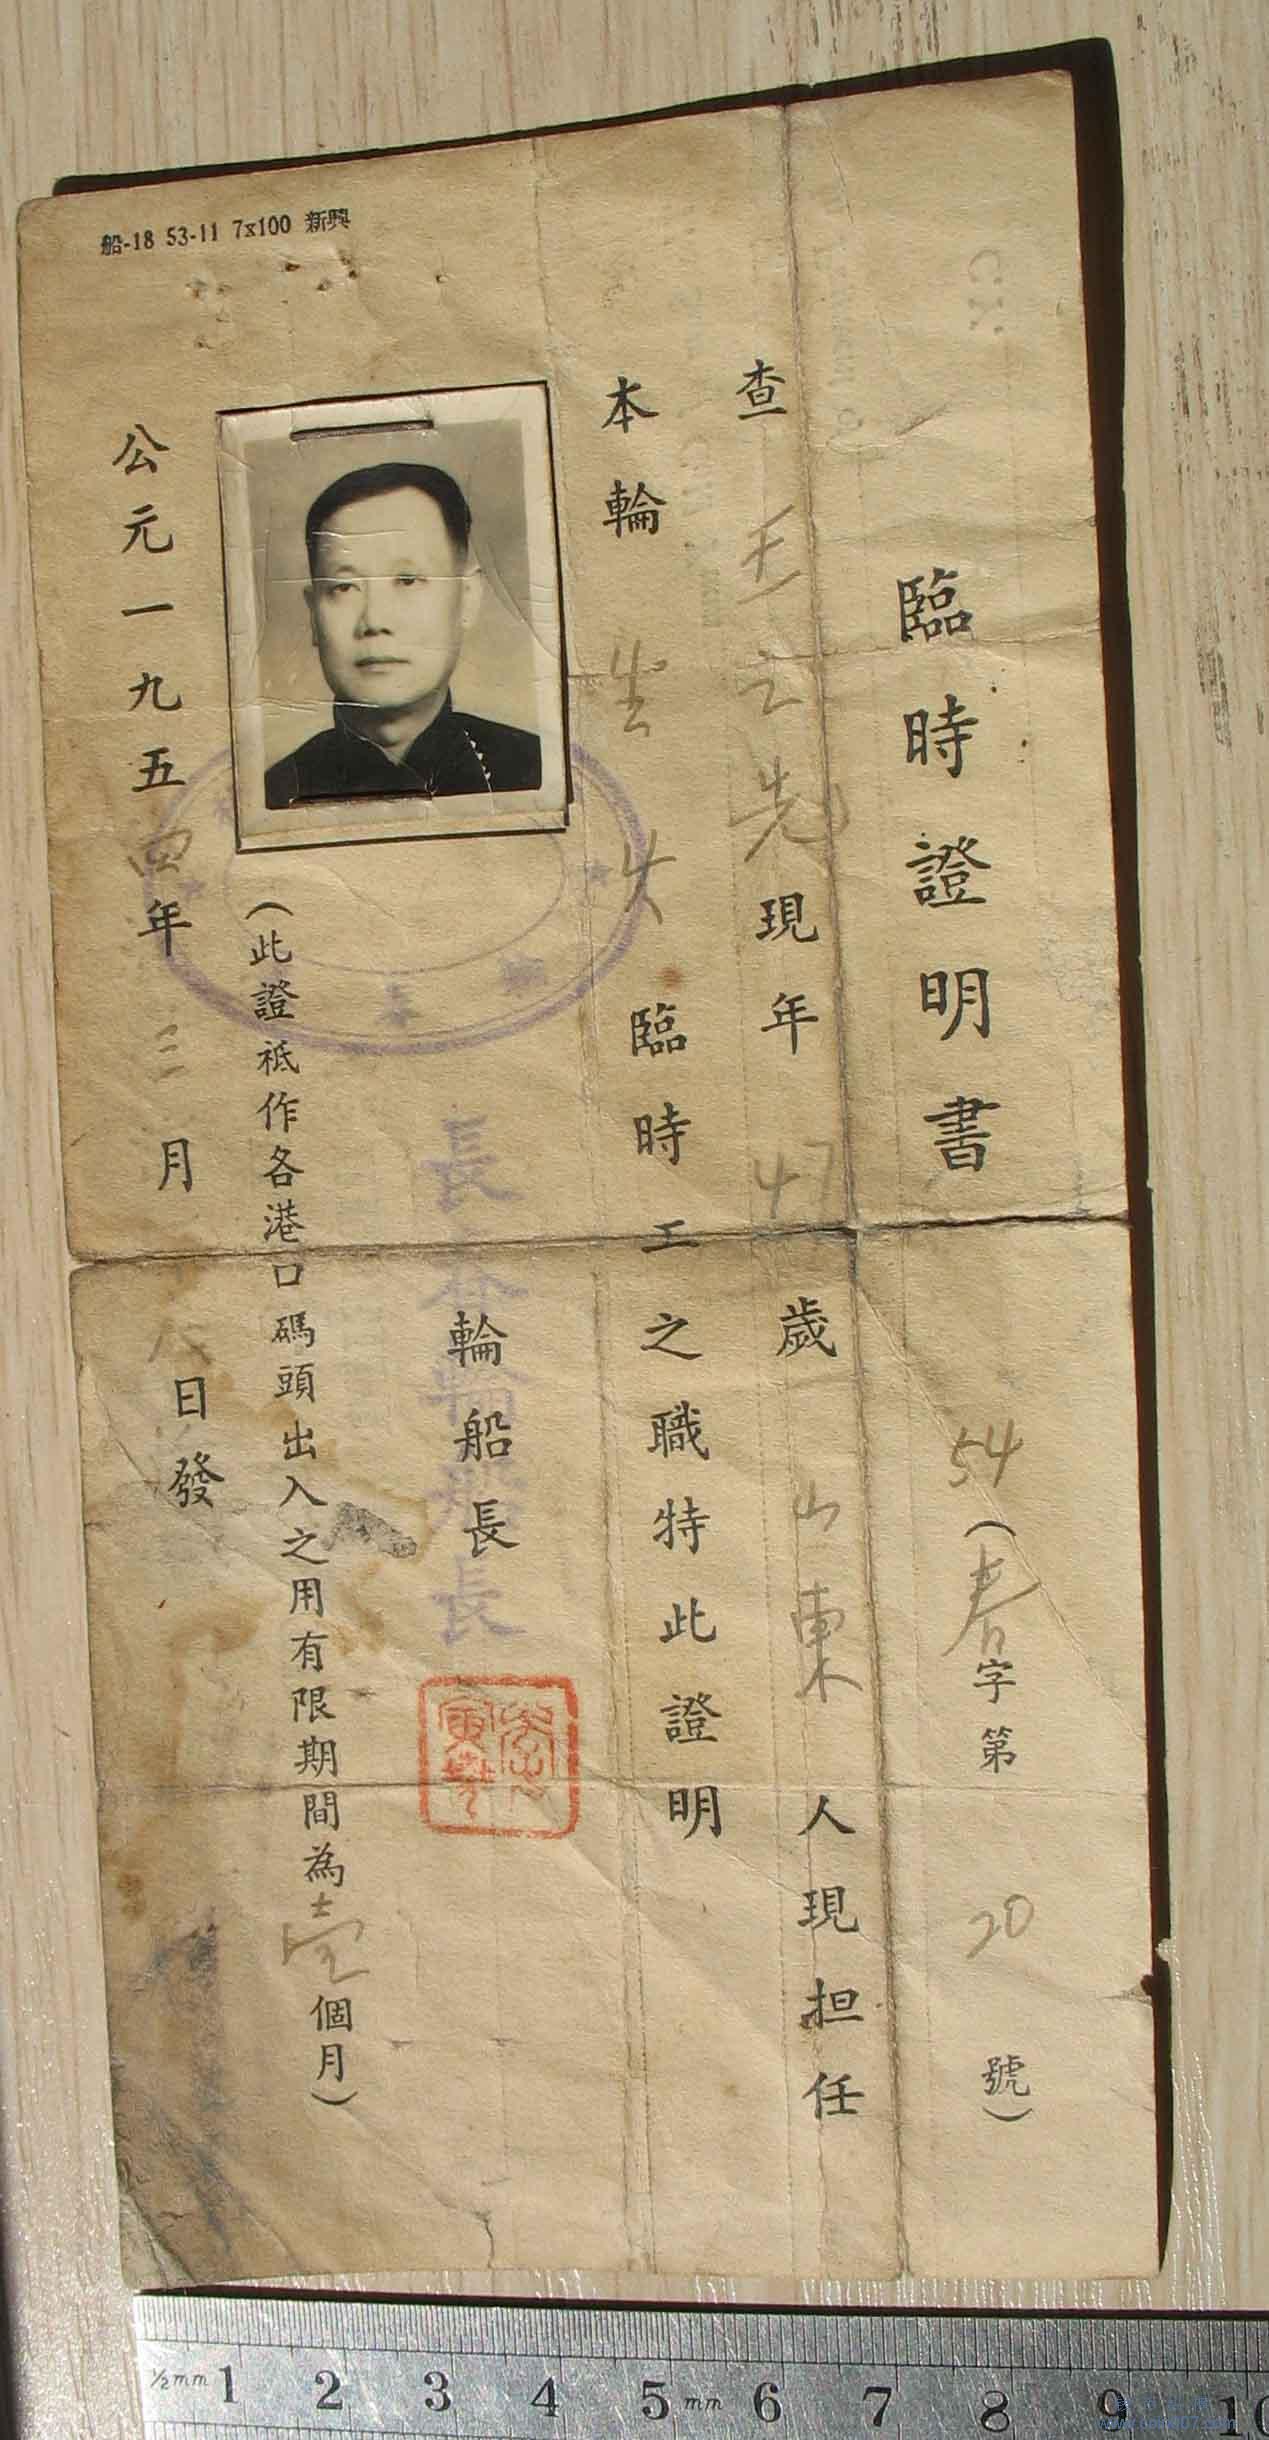 船-18 53-11 7x100 新興
臨時證明書
54(春字第20號)
查王立先現年47歲山東人現担任
本輪生火臨時工之職特此證明
長春輪船長
輪船長
(此證祗作各港口碼頭出入之用有限期間為壹個月)
公元一九五四年三月 日發
1/2mm 1 2 3 4 5 mm 6 7 8 9 10